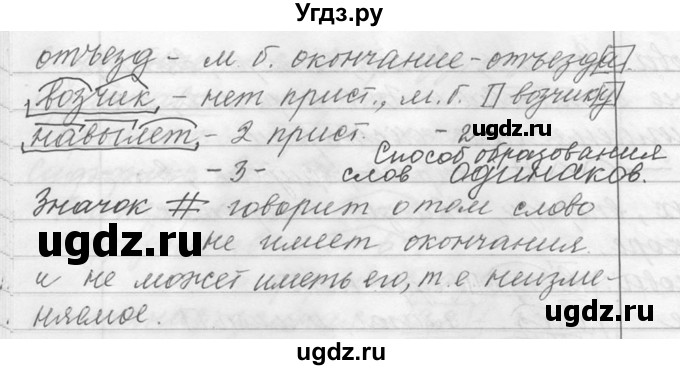 Угдз.ру
отъезд - м. б. окончание - отъезда.
возчик, - нет прист., м. б. возчику
навылет, - 2 прист. - 2
- 3 - Способ образования
слов одинаков.
Значок # говорит о том слово
не имеет окончания
и не может иметь его, т. е. неизме-
няемое.
ugdz.ru
ugdz.ru
ugdz.ru
ugdz.ru
ugdz.ru
ugdz.ru